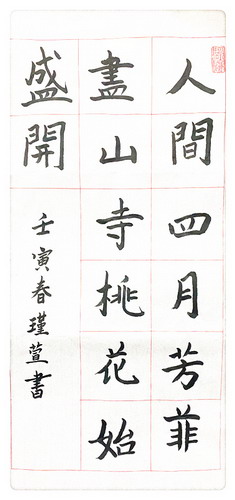 人間四月芳菲
盡山寺桃花始
盛開
壬寅春瑾萱書